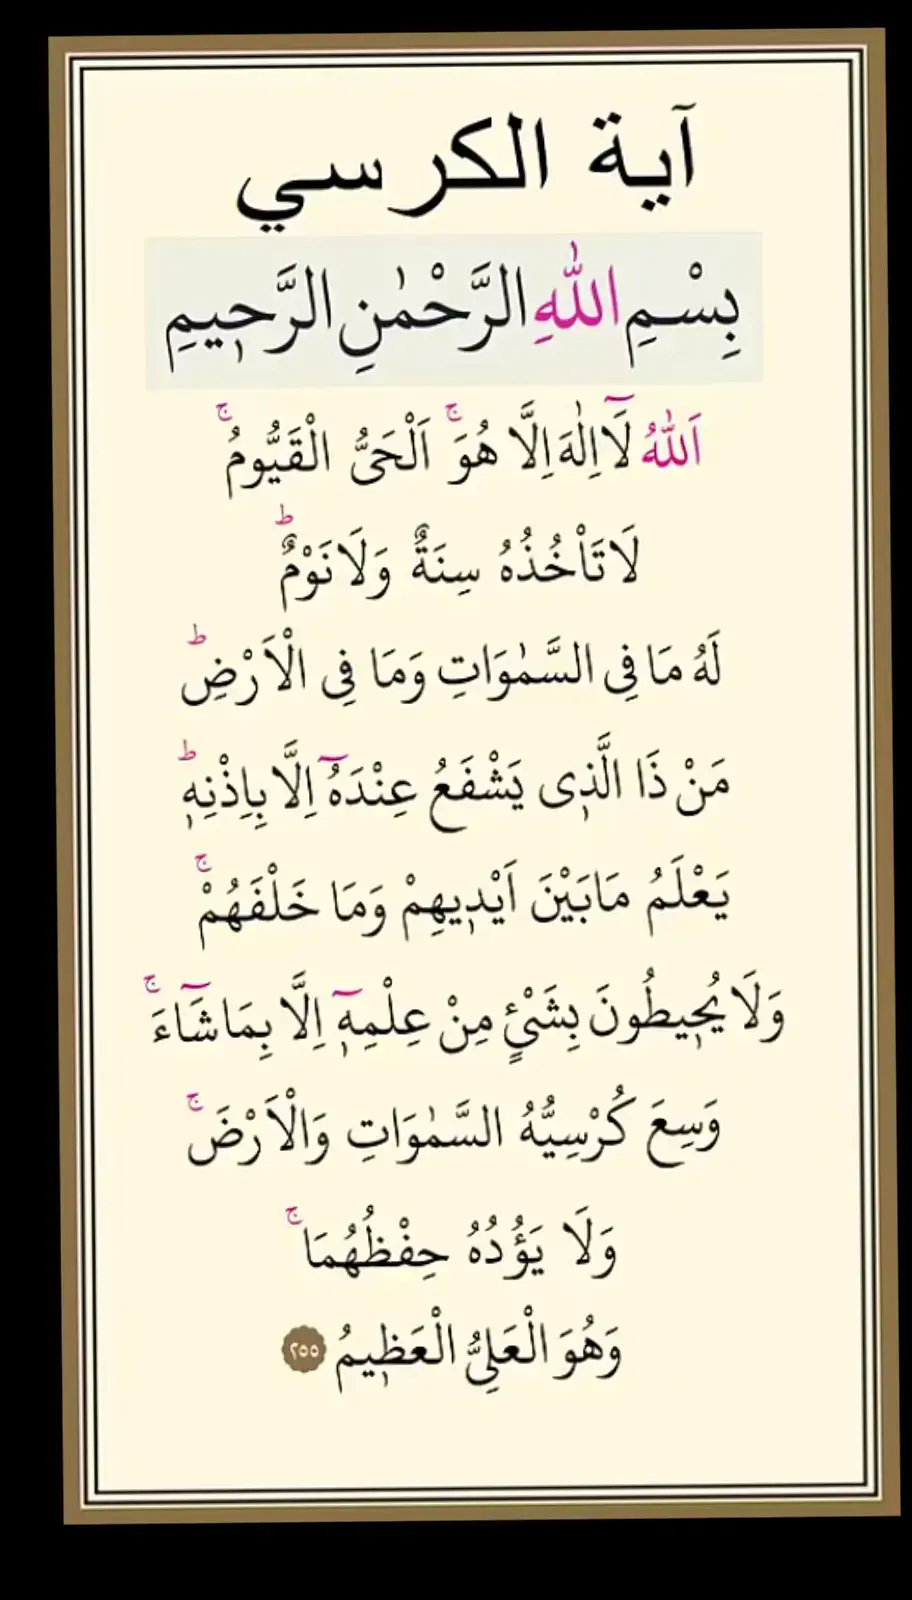 آية الكرسي
بِسْمِ اللّٰهِ الرَّحْمٰنِ الرَّحٖيمِ
اَللّٰهُ لَٓا اِلٰهَ اِلَّا هُوَۚ اَلْحَىُّ الْقَيُّومُۚ
لَا تَاْخُذُهُ سِنَةٌ وَلَا نَوْمٌؕ
لَهُ مَا فِى السَّمٰوَاتِ وَمَا فِى الْاَرْضِؕ
مَنْ ذَا الَّذٖى يَشْفَعُ عِنْدَهُٓ اِلَّا بِاِذْنِهٖؕ
يَعْلَمُ مَا بَيْنَ اَيْدٖيهِمْ وَمَا خَلْفَهُمْۚ
وَلَا يُحٖيطُونَ بِشَىْءٍ مِنْ عِلْمِهٖٓ اِلَّا بِمَا شَٓاءَۚ
وَسِعَ كُرْسِيُّهُ السَّمٰوَاتِ وَالْاَرْضَۚ
وَلَا يَؤُدُهُ حِفْظُهُمَاۚ
وَهُوَ الْعَلِىُّ الْعَظٖيمُ ٢٥٥